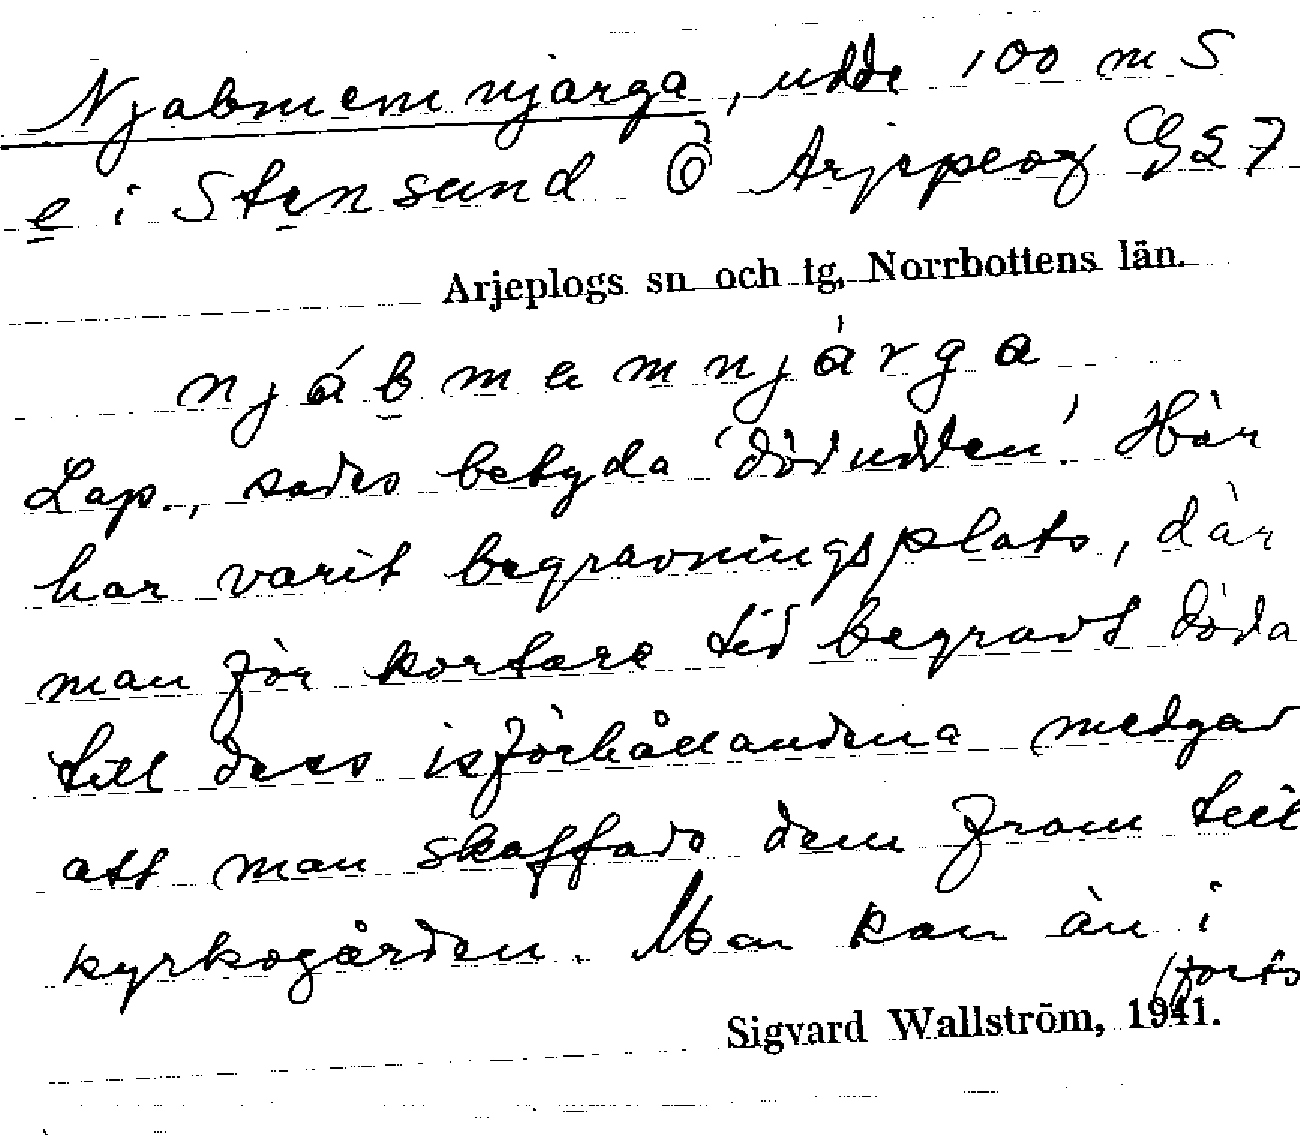 Njabmemnjarga, udde 100 m S
e i Stensund Ö Arjeplog G 27
Arjeplogs sn och tg, Norrbottens län.
njábmemnjárga
Lap., sades betyda 'dödudden'. Här
har varit begravningsplats, där
man för kortare tid begravt döda
till dess isförhållandena medgav
att man skaffade dem fram till
kyrkogården. Man kan än i
(forts
Sigvard Wallström, 1941.